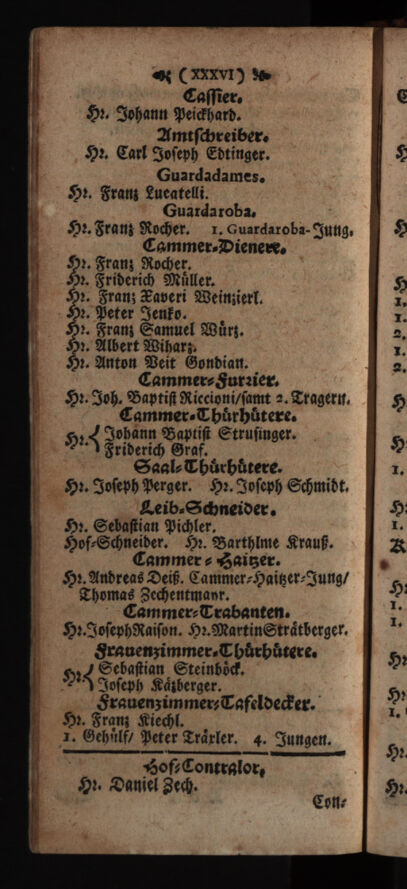 (XXXVI)
Cassier.
Hr. Johann Peickhard.
Amtschreiber.
Hr. Carl Joseph Edtinger.
Guardadames.
Hr. Franz Lucatelli.
Guardaroba.
Hr. Franz Rocher. 1. Guardaroba-Jung.
Cammer-Dienere.
Hr. Franz Rocher.
Hr. Friderich Müller.
Hr. Franz Xaveri Weinzierl.
Hr. Peter Jenko.
Hr. Franz Samuel Würz.
Hr. Albert Wiharz.
Hr. Anton Veit Gondian.
Cammer-Furrier.
Hr. Joh. Baptist Riccioni/samt 2. Tragern.
Cammer-Thürhütere.
Hr. { Johann Baptist Strusinger.
Friderich Graf.
Saal-Thürhütere.
Hr. Joseph Perger. Hr. Joseph Schmidt.
Leib-Schneider.
Hr. Sebastian Pichler.
Hof-Schneider. Hr. Barthlme Krauß.
Cammer-Haitzer.
Hr. Andreas Deiß. Cammer-Haitzer-Jung/
Thomas Zechentmayr.
Cammer-Trabanten.
Hr. Joseph Raison. Hr. Martin Strätberger.
Frauenzimmer-Thürhütere.
Hr. { Sebastian Steinböck.
Joseph Kätzberger.
Frauenzimmer-Tafeldecker.
Hr. Franz Kiechl.
1. Gehülf/ Peter Träxler. 4. Jungen.
Hof-Contralor,
Hr. Daniel Zech.
Con-